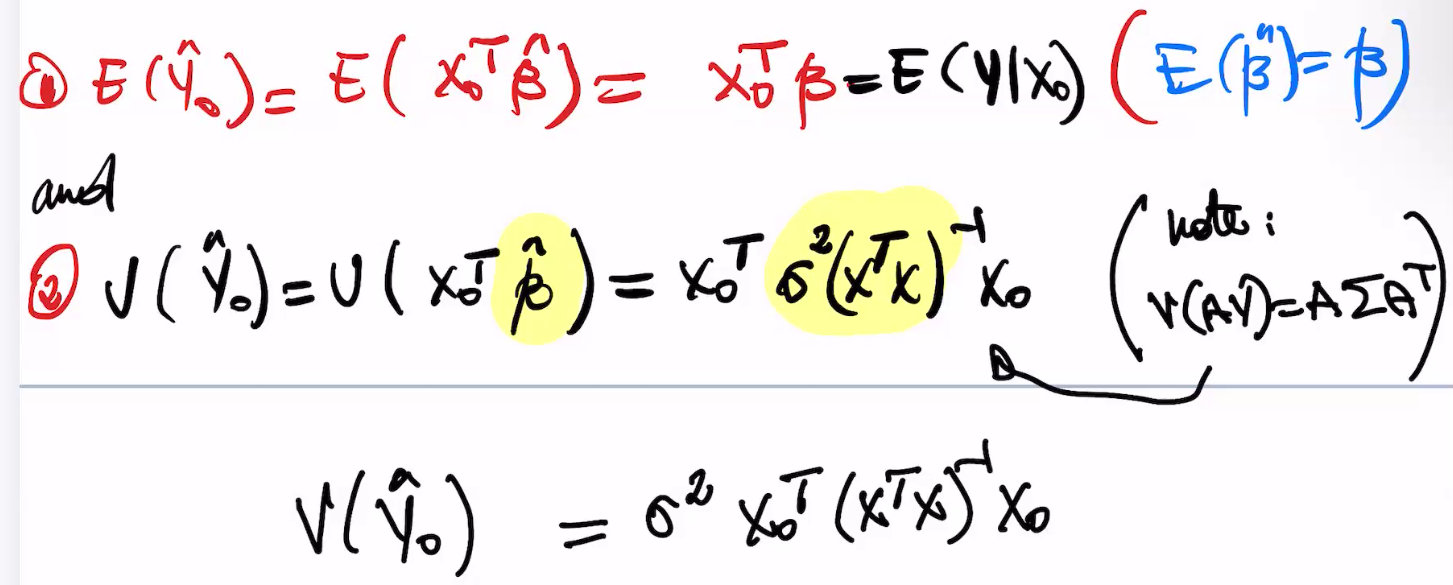 ① E(Ŷ₀) = E(X₀ᵀ β̂) = X₀ᵀ β = E(Y|X₀) (E(β̂) = β)
and
② V(Ŷ₀) = V(X₀ᵀ β̂) = X₀ᵀ σ²(XᵀX)⁻¹ X₀ (note: V(AY) = AΣAᵀ)
V(Ŷ₀) = σ² X₀ᵀ (XᵀX)⁻¹ X₀